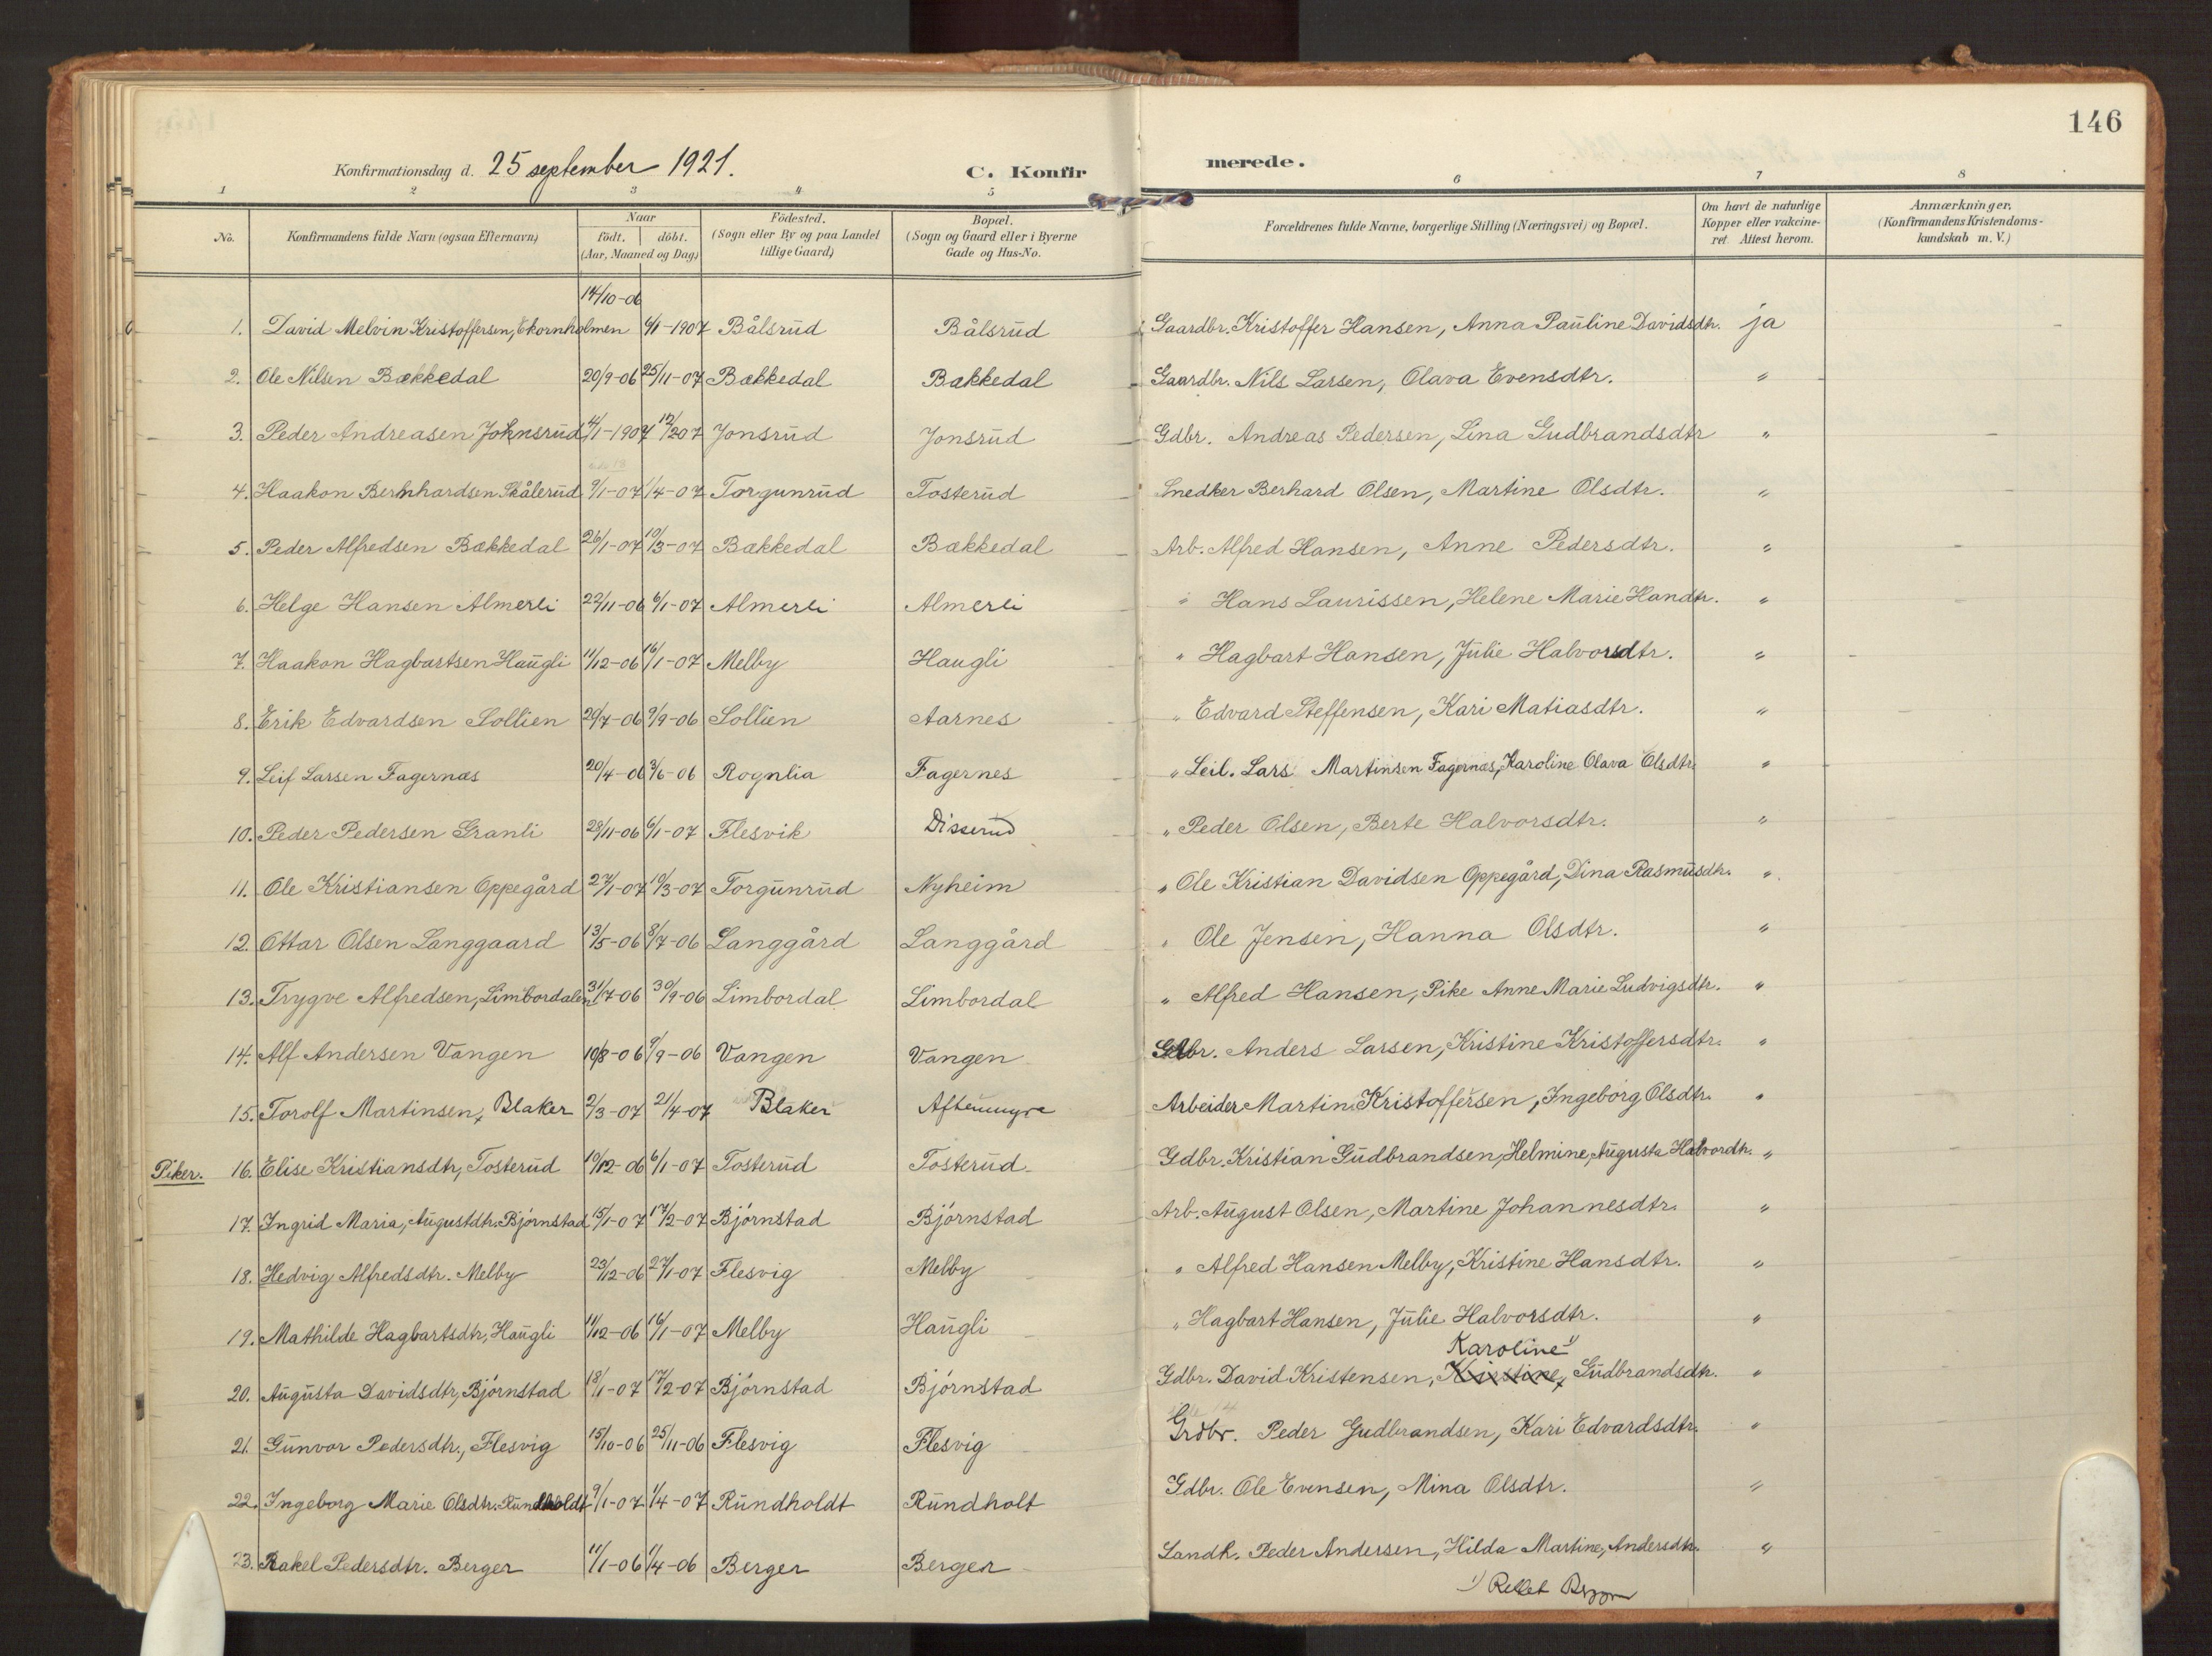 146
Konfirmationsdag d. 25 september 1921.
C. Konfirmerede.
1 2 3 4 5 6 7 8
No. Konfirmandens fulde Navn (ogsaa Efternavn) Naar født. døbt. (Aar, Maaned og Dag) Fødested. (Sogn eller By og paa Landet tillige Gaard) Bopæl. (Sogn og Gaard eller i Byerne Gade og Hus-No. Forældrenes fulde Navne, borgerlige Stilling (Næringsvei) og Bopæl. Om havt de naturlige Kopper eller vakcineret Attest herom. Anmærkninger. (Konfirmandens Kristendomskundskab m. V.)
1. David Melvin Kristoffersen, Ekornholmen 14/10-06 6/1-1907 Bålsrud Bålsrud Gaardbr. Kristoffer Hansen, Anna Pauline Davidsdtr. ja
2. Ole Nilsen Bækkedal 20/9-06 25/11-07 Bækkedal Bækkedal Gaardbr. Nils Larsen, Olava Evensdtr. "
3. Peder Andreasen Johnsrud 4/1-1907 17/207 Jonsrud Jonsrud Gdbr. Andreas Pedersen, Lina Gudbrandsdtr "
4. Haakon Bernhardsen Skålerud 9/1-07 1/4-07 Torgunrud Tosterud Snedker Berhard Olsen, Martine Olsdtr. "
5. Peder Alfredsen Bækkedal 26/1-07 10/3-07 Bækkedal Bækkedal Arb. Alfred Hansen, Anne Pedersdtr. "
6. Helge Hansen Almerli 22/11-06 6/1-07 Almerli Almerli " Hans Laurissen, Helene Marie Handtr. "
7. Haakon Hagbartsen Haugli 11/12-06 16/1-07 Melby Haugli " Hagbart Hansen, Julie Halvorsdtr. "
8. Erik Edvardsen Sollien 29/7-06 9/9-06 Sollien Aarnes " Edvard Steffensen, Kari Matiasdtr. "
9. Leif Larsen Fagernæs 20/4-06 3/6-06 Rognlia Fagernes " Leil. Lars Martinsen Fagernæs, Karoline Olava Olsdtr. "
10. Peder Pedersen Granli 28/11-06 6/1-07 Flesvik Disserud " Peder Olsen, Berte Halvorsdtr. "
11. Ole Kristiansen Oppegård 27/1-07 10/3-07 Torgunrud Nyheim " Ole Kristian Davidsen Oppegård, Dina Rasmusdtr. "
12. Ottar Olsen Langgaard 13/5-06 8/7-06 Langgård Langgård " Ole Jensen, Hanna Olsdtr. "
13. Trygve Alfredsen, Limbordalen 31/7-06 30/9-06 Limbordal Limbordal " Alfred Hansen, Pike Anne Marie Ludvigsdtr. "
14. Alf Andersen Vangen 10/8-06 9/9-06 Vangen Vangen Gdbr. Anders Larsen, Kristine Kristoffersdtr. "
15. Torolf Martinsen, Blaker 2/3-07 21/4-07 Blaker Aftenmyre Arbeider Martin Kristoffersen, Ingeborg Olsdtr. "
Piker. 16. Elise Kristiansdtr, Tosterud 10/12-06 6/1-07 Tosterud Tosterud. Gdbr. Kristian Gudbrandsen, Helmine, Augusta Halvordtr. "
17. Ingrid Maria, Augustdtr. Bjørnstad 15/1-07 17/2-07 Bjørnstad Bjørnstad Arb. August Olsen, Martine Johannesdtr. "
18. Hedvig Alfredsdtr. Melby 23/12-06 27/1-07 Flesvig Melby " Alfred Hansen Melby, Kristine Hansdtr. "
19. Mathilde Hagbartsdtr, Haugli 11/12-06 16/1-07 Melby Haugli " Hagbart Hansen, Julie Halvorsdtr. "
Karoline 1)
20. Augusta Davidsdtr, Bjørnstad 18/1-07 17/2-07 Bjørnstad Bjørnstad Gdbr. David Kristensen, Kristine, Gudbrandsdtr. "
21. Gunvor Pedersdtr., Flesvig 15/10-06 25/11-06 Flesvig Flesvig Grdbr. Peder Gudbrandsen, Kari Edvardsdtr. "
22. Ingeborg Marie Olsdtr. Rundholdt 9/1-07 1/4-07 Rundholdt Rundholt Gdbr. Ole Evensen, Mina Olsdtr. "
23. Rakel Pedersdtr. Berger 11/1-06 1/4-06 Berger Berger Landh. Peder Andersen, Hilda Martine, Andersdtr. "
1) Rettet